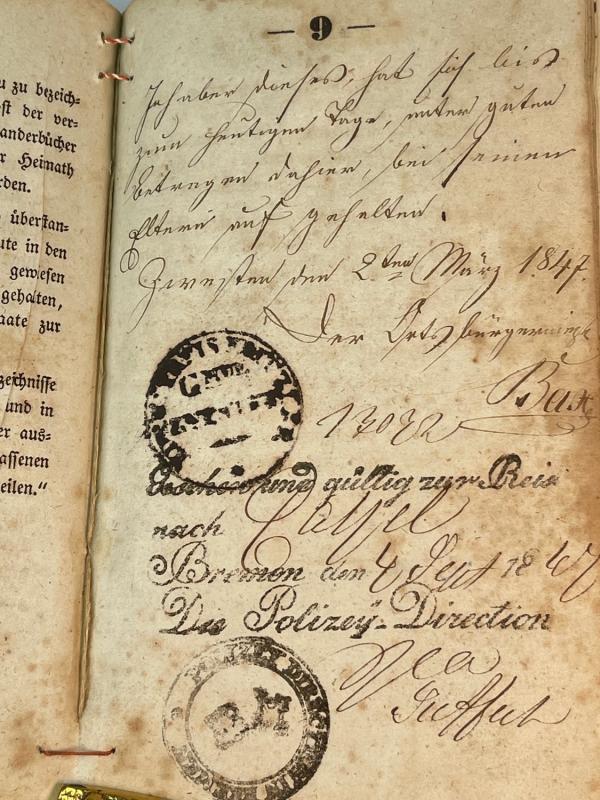 u zu bezeich-
ft der ver-
anderbücher
r Heimath
rden.
überstan-
ute in den
gewesen
gehalten,
aate zur
zeichnisse
und in
er aus-
assenen
eilen."
— 9 —
Inhaber dieses, hat sich bis
zum heutigen Tage, unter guten
betragen dahier, bei seinen
Eltern auf gehalten.
Zwesten den 2ten März 1847.
Der Ortsbürgermeist
13032
Gesehen und gültig zur Reise
nach Cassel
Bremen den 4 Sept 1847
Die Polizey-Direction
POLIZEI DIRECTION